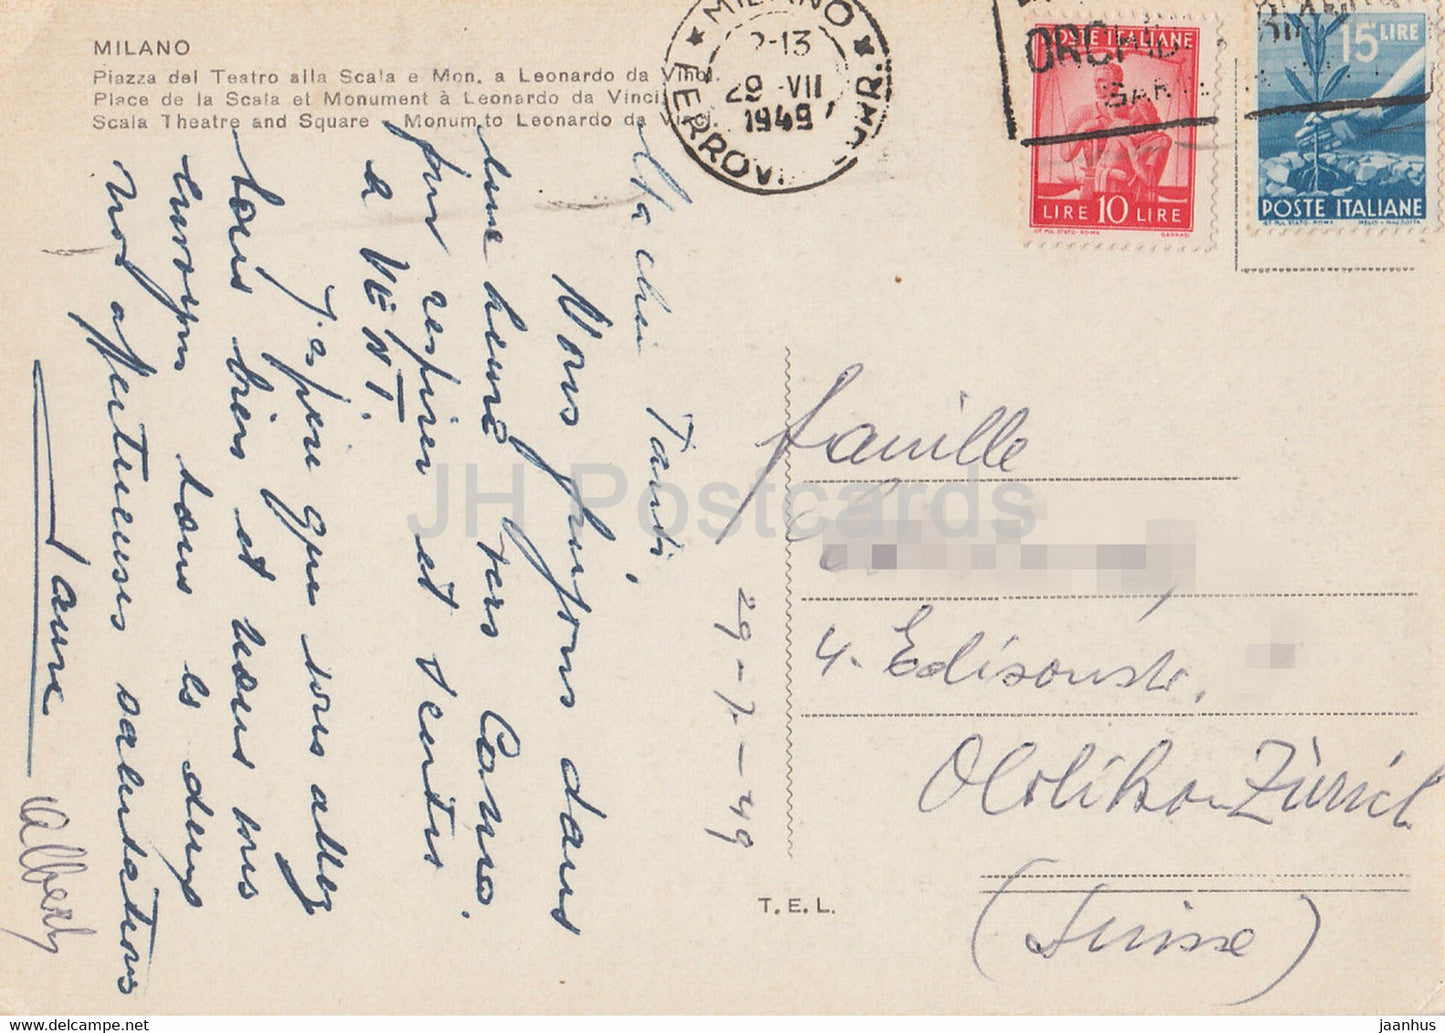 MILANO
Piazza del Teatro alla Scala e Mon. a Leonardo da Vinci.
Place de la Scala et Monument à Leonardo da Vinci.
Scala Theatre and Square - Monum. to Leonardo da Vinci.
MILANO
29 VII
1949
FERROV.
ORCHID
POSTE ITALIANE
LIRE 10 LIRE
15 LIRE
POSTE ITALIANE
Ma chère Tante,
Nous fuyons dans
une heure vers Como.
pour respirer et sentir
le VENT.
J'espère que vous allez
tous bien et nous vous
envoyons tous les deux
nos affectueuses salutations
Laure
Albert
29-7-49
Famille
4. Edisonstr.
Oerlikon-Zürich
(Suisse)
T.E.L.
JH Postcards
www.delcampe.net
jaanhus